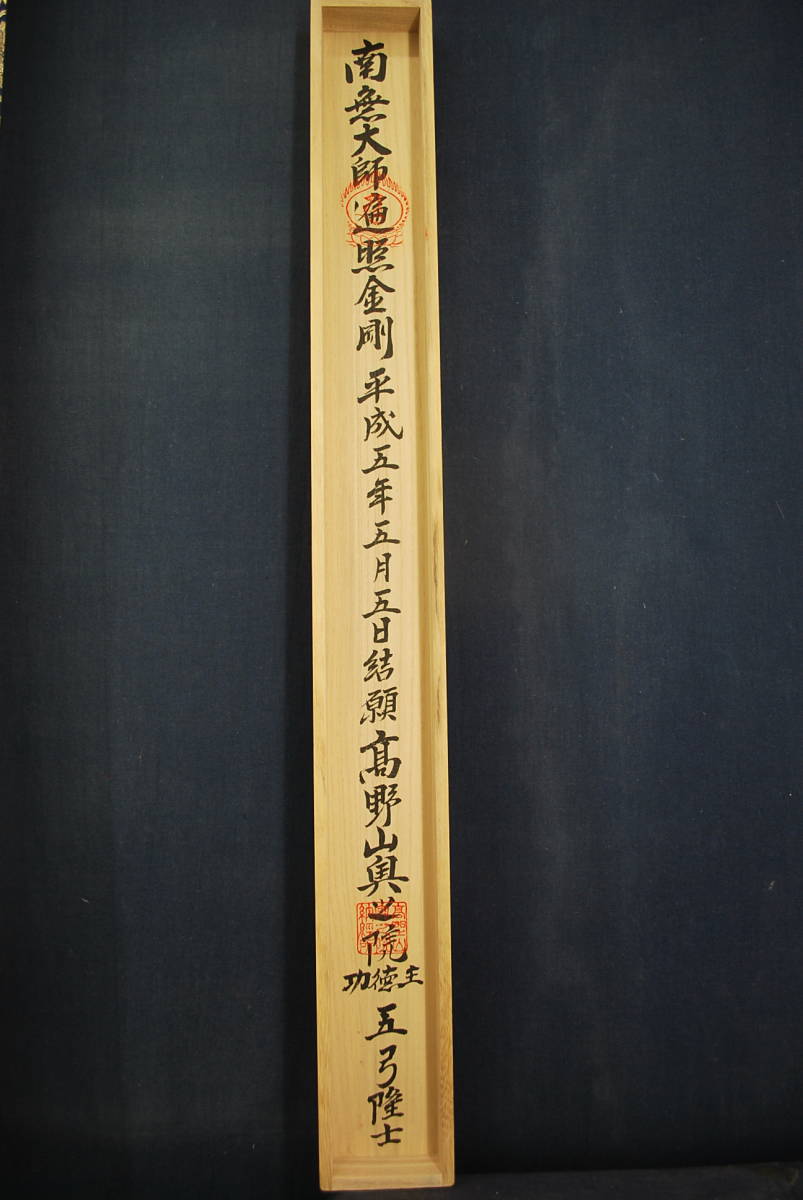 南無大師遍照金剛 平成五年五月五日結願 髙野山奥之院
功徳主
五弓隆士